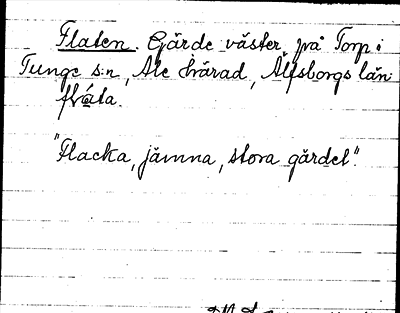 Flaten. Gärde väster på Torp i
Tunge s:n, Ale härad, Älfsborgs län.
flåta.
"Flacka, jämna, stora gärdet".